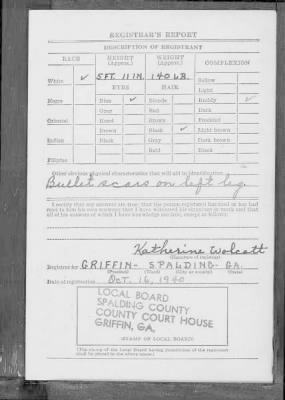 REGISTRAR'S REPORT
DESCRIPTION OF REGISTRANT
RACE HEIGHT (Approx.) WEIGHT (Approx.) COMPLEXION
White ✓ 5 FT. 11 IN. 140 LB. Sallow
EYES HAIR Light
Negro Blue ✓ Blonde Ruddy ✓
Gray Red Dark
Oriental Hazel Brown Freckled
Brown Black ✓ Light brown
Indian Black Gray Dark brown
Bald Black
Filipino
Other obvious physical characteristics that will aid in identification
Bullet scars on left leg.
I certify that my answers are true; that the person registered has read or has had
read to him his own answers; that I have witnessed his signature or mark and that
all of his answers of which I have knowledge are true, except as follows:
Katherine Wolcott
(Signature of registrar)
Registrar for GRIFFIN- SPALDING- GA.
(Precinct) (Ward) (City or county) (State)
Date of registration Oct. 16, 1940
LOCAL BOARD
SPALDING COUNTY
COUNTY COURT HOUSE
GRIFFIN, GA.
(STAMP OF LOCAL BOARD)
(The stamp of the Local Board having jurisdiction of the registrant
shall be placed in the above space)